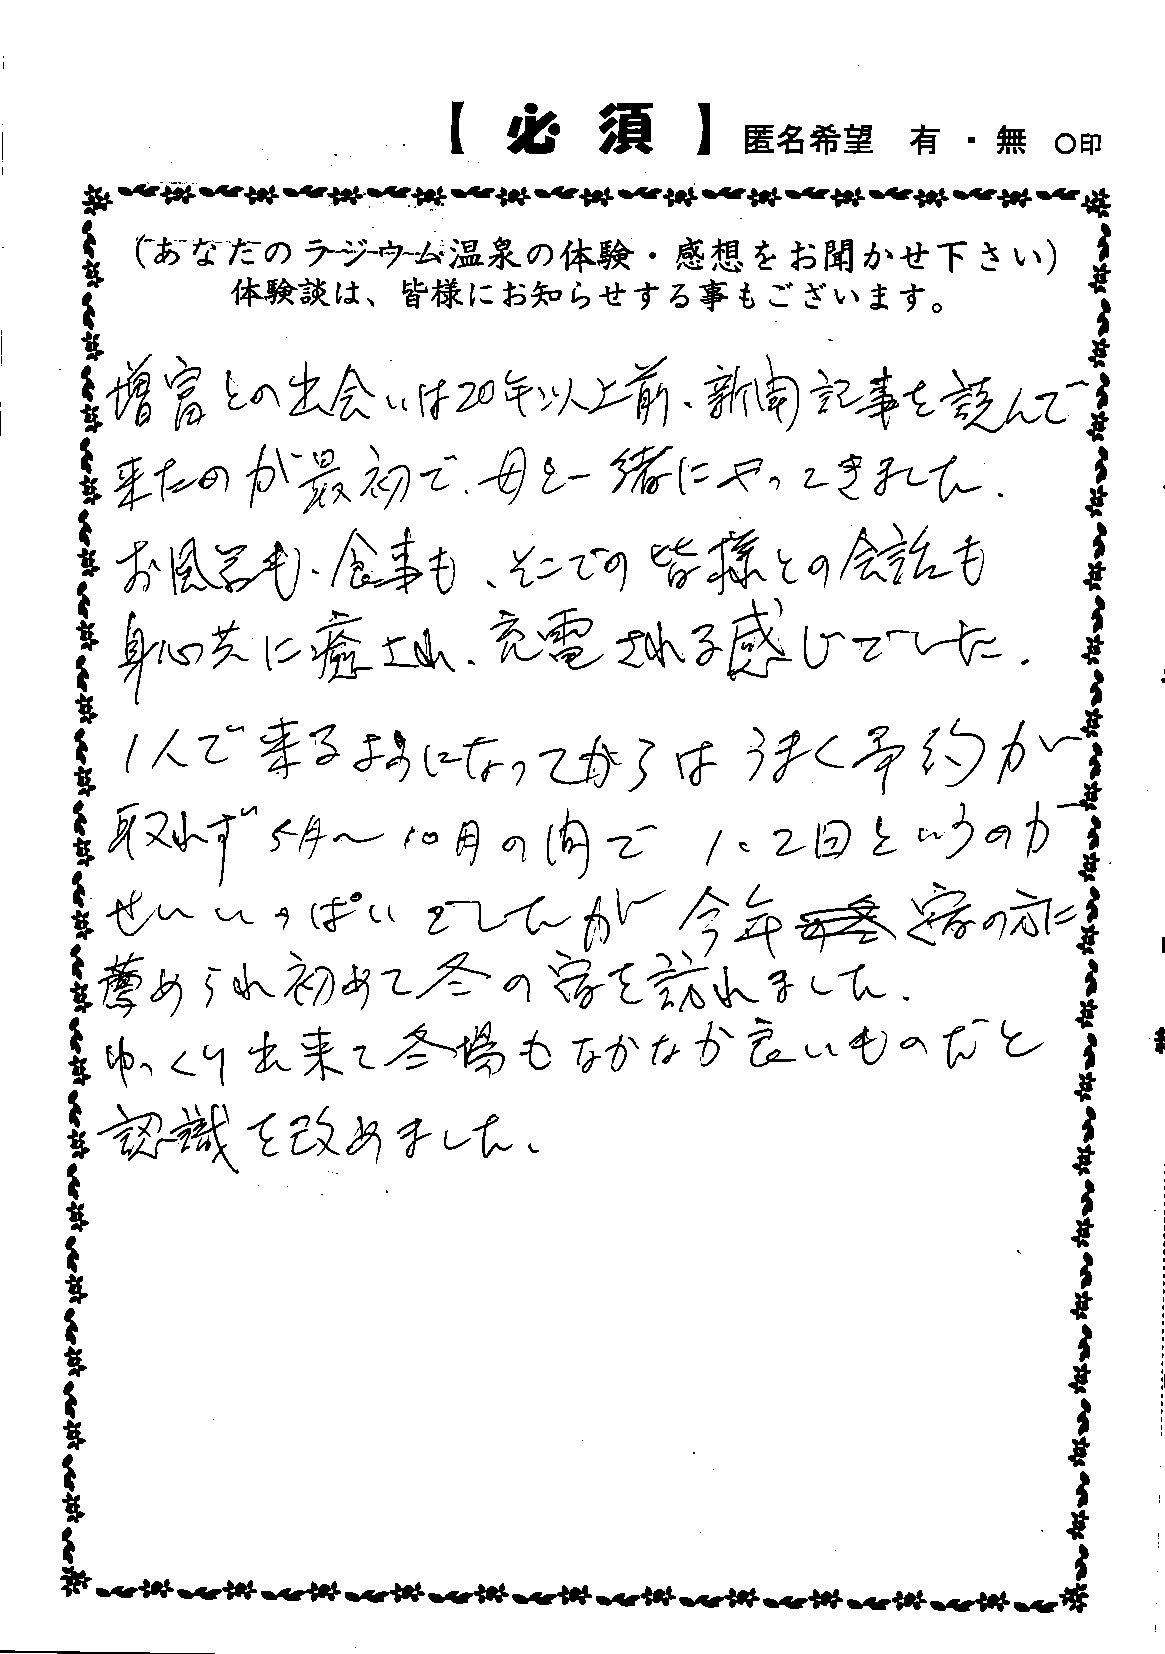 【必須】匿名希望 有・無 ○印
(あなたのラジウム温泉の体験・感想をお聞かせ下さい)
体験談は、皆様にお知らせする事もございます。
増富との出会いは20年以上前、新聞記事を読んで
来たのが最初で、母と一緒にやってきました。
お風呂も、食事も、そこでの皆様との会話も
身心共に癒され、充電される感じでした。
1人で来るようになってからはうまく予約が
取れず5月〜10月の間で 1、2回というのが
せいいっぱいでしたが今年 宿の方に
薦められ初めて冬の宿を訪れました。
ゆっくり出来て冬場もなかなか良いものだと
認識を改めました。